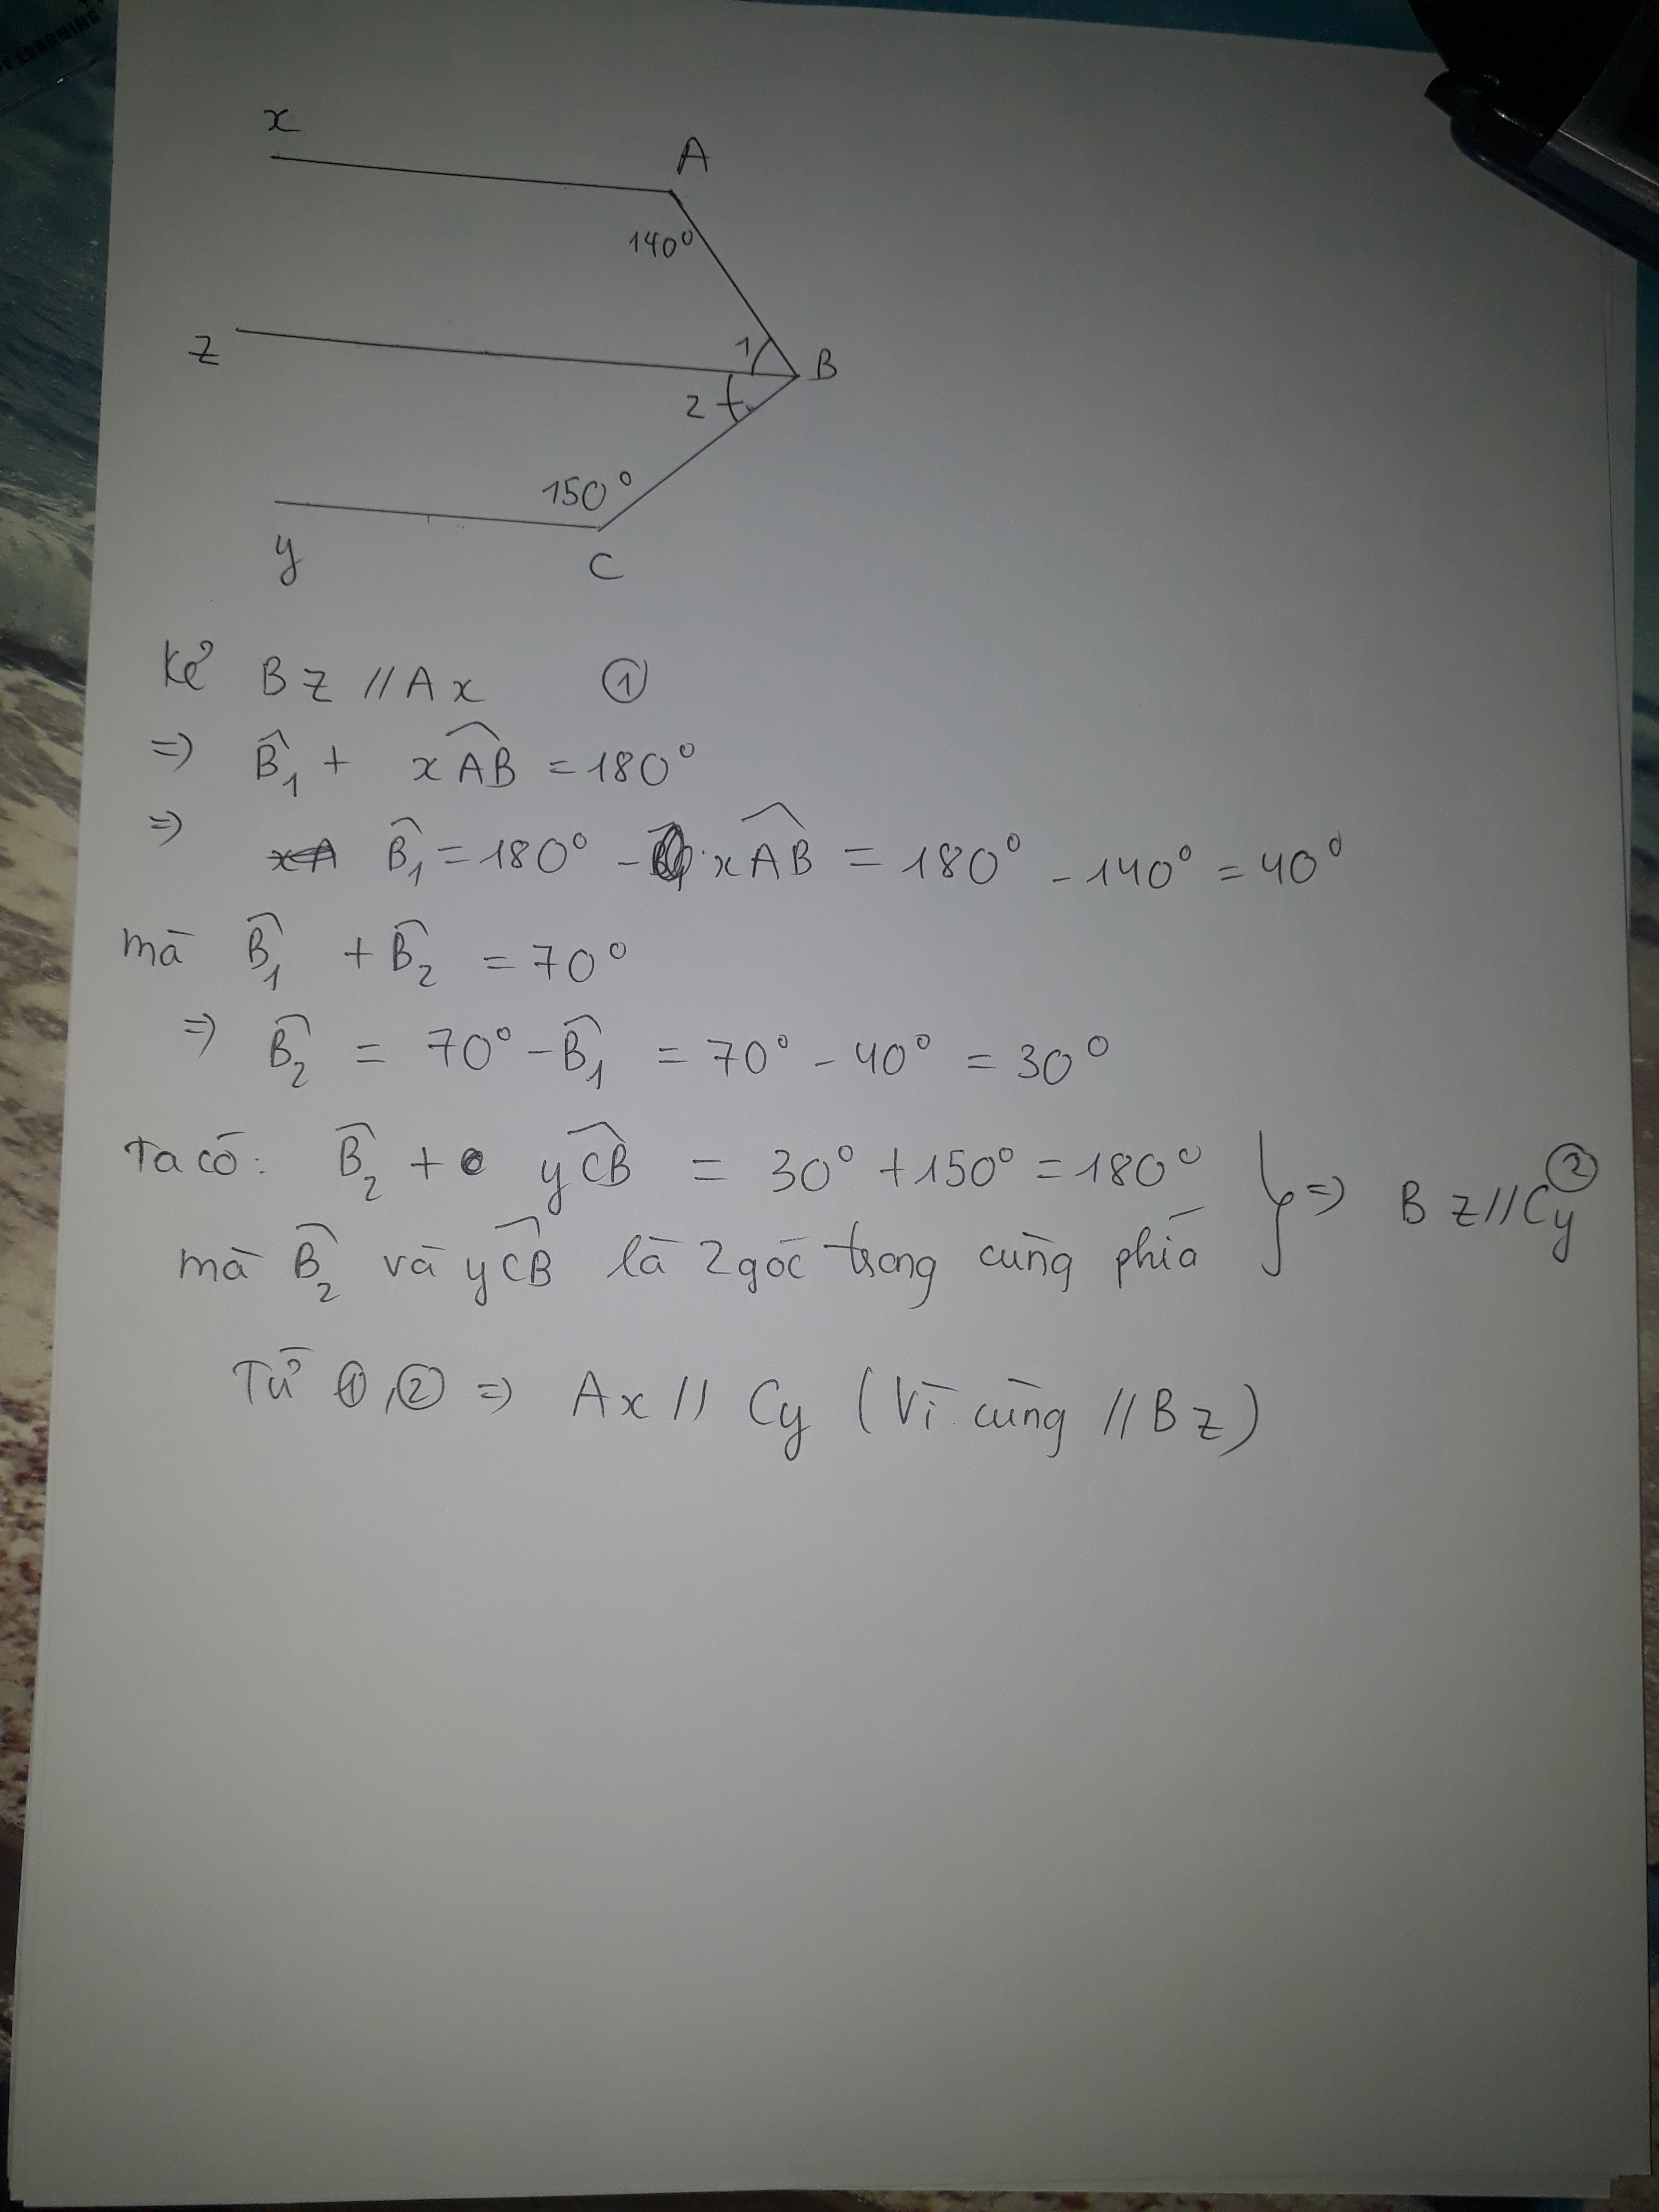 LEARNING
x
A
140°
z
1
B
2
150°
y
C
Kẻ Bz // Ax ①
=> B̂₁ + xÂB = 180°
=> B̂₁ = 180° - xÂB = 180° - 140° = 40°
mà B̂₁ + B̂₂ = 70°
=> B̂₂ = 70° - B̂₁ = 70° - 40° = 30°
Ta có: B̂₂ + yĈB = 30° + 150° = 180°
mà B̂₂ và yĈB là 2 góc trong cùng phía } => Bz // Cy ②
Từ ①, ② => Ax // Cy (Vì cùng // Bz)